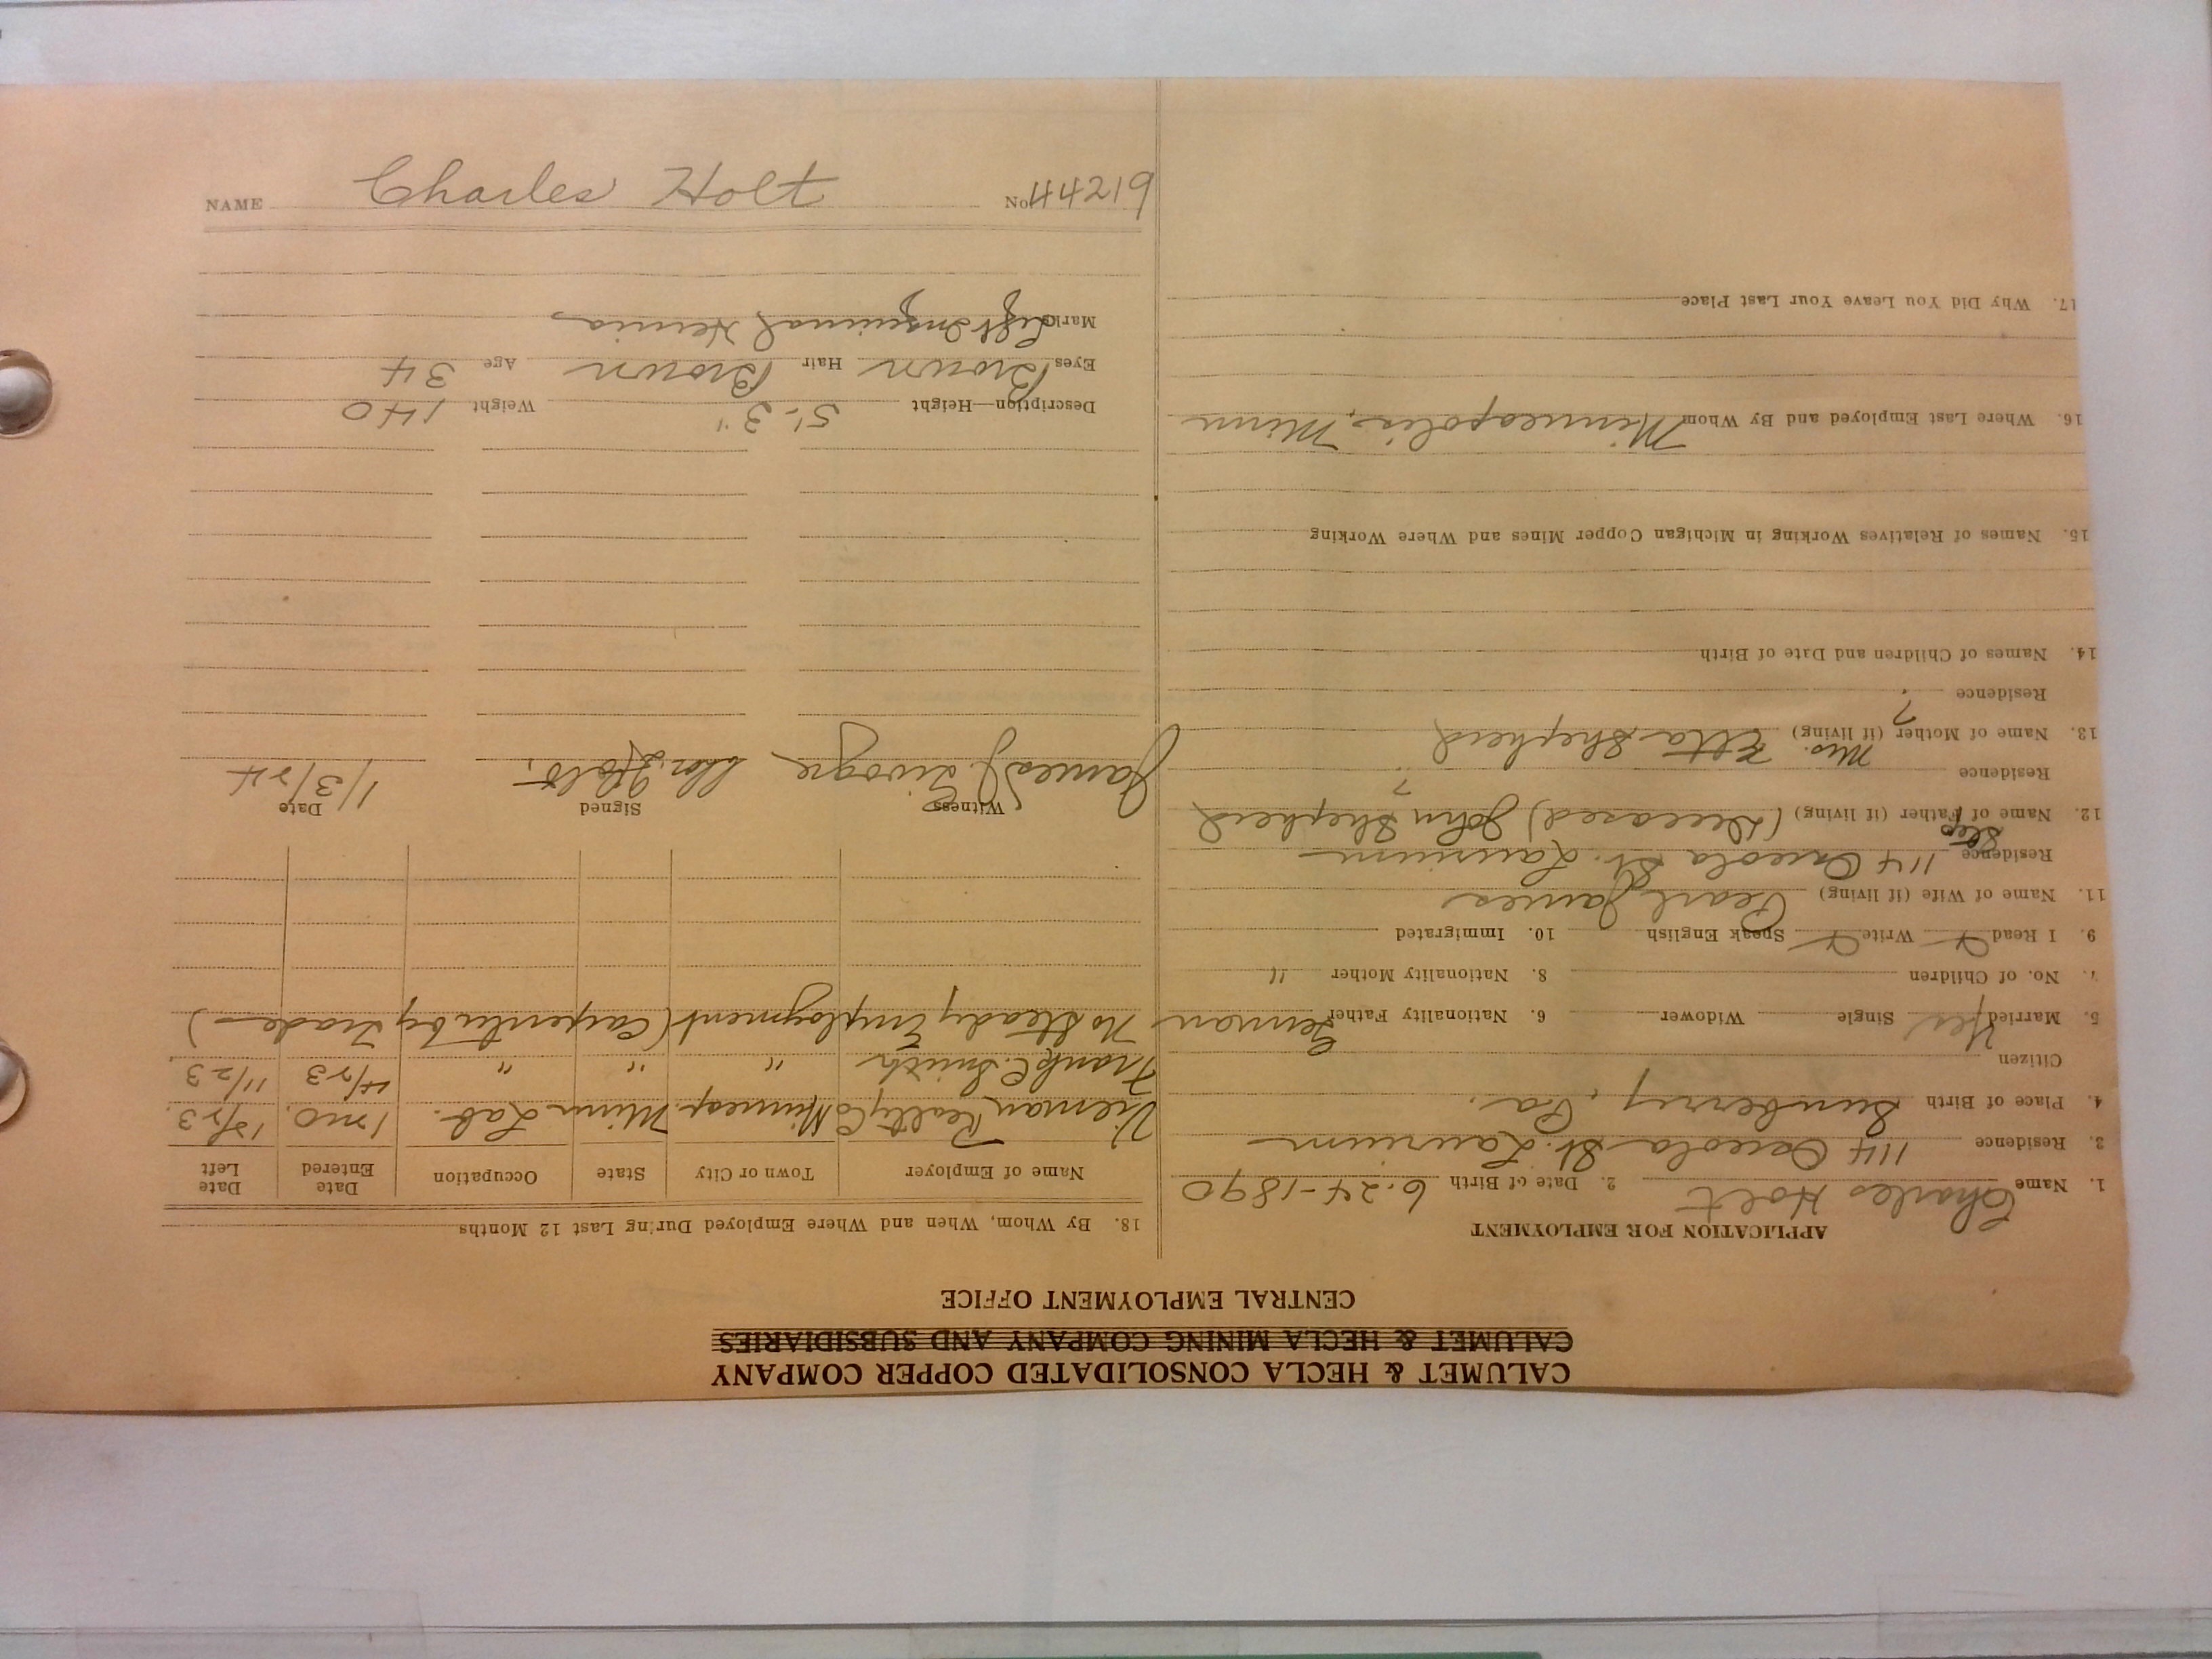 CALUMET & HECLA CONSOLIDATED COPPER COMPANY
CALUMET & HECLA MINING COMPANY AND SUBSIDIARIES
CENTRAL EMPLOYMENT OFFICE
APPLICATION FOR EMPLOYMENT
1. Name Charles Holt 2. Date of Birth 6-24-1890
3. Residence 114 Osceola St. Laurium
4. Place of Birth Sunberry, Pa.
Citizen
5. Married Yes Single Widower 6. Nationality Father German
7. No. of Children 8. Nationality Mother "
9. I Read Write Speak English 10. Immigrated
11. Name of Wife (if living) Pearl James
Residence 114 Osceola St. Laurium
12. Name of Step Father (if living) (Deceased) John Shepherd
Residence ?
13. Name of Mother (if living) Mrs. Etta Shepherd
Residence ?
14. Names of Children and Date of Birth
15. Names of Relatives Working in Michigan Copper Mines and Where Working
16. Where Last Employed and By Whom Minneapolis, Minn
17. Why Did You Leave Your Last Place
18. By Whom, When and Where Employed During Last 12 Months
Name of Employer Town or City State Occupation Date Entered Date Left
Realty Co Minneap. Minn Lab. 1 mo. 12/23.
Frank C. Smith " " " 4/23 11/23.
No Steady Employment (Carpenter by Trade)
Witness Signed Date
James J. Chas. Holt. 1/3/24
Description—Height 5'-3" Weight 140
Eyes Brown Hair Brown Age 34
Marks Left Inguinal Hernia
NAME Charles Holt No. 44219